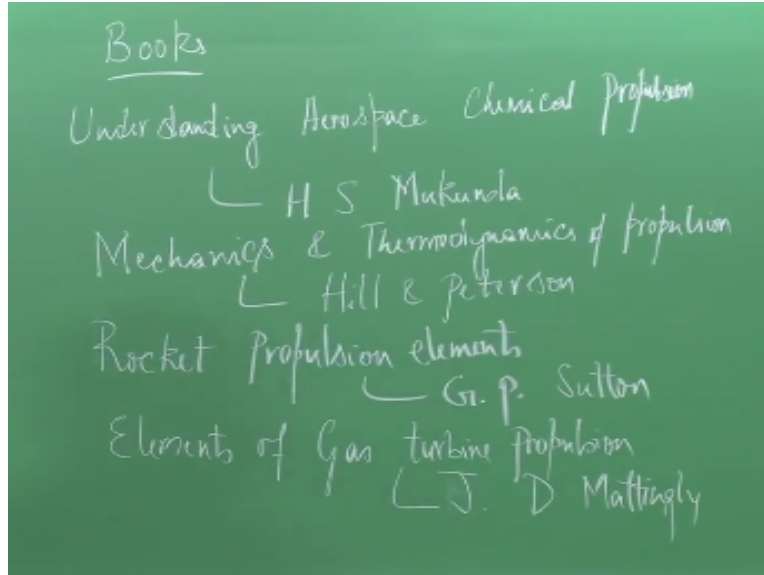 Books
Understanding Aerospace Chemical Propulsion
H S Mukunda
Mechanics & Thermodynamics of propulsion
Hill & Peterson
Rocket Propulsion elements
G. P. Sutton
Elements of Gas turbine propulsion
J. D Mattingly